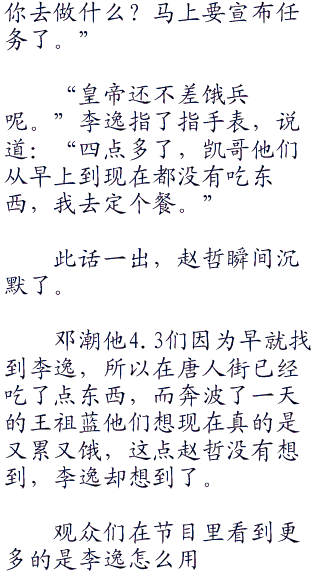 你去做什么？马上要宣布任
务了。”
“皇帝还不差饿兵
呢。”李逸指了指手表，说
道：“四点多了，凯哥他们
从早上到现在都没有吃东
西，我去定个餐。”
此话一出，赵哲瞬间沉
默了。
邓潮他4.3们因为早就找
到李逸，所以在唐人街已经
吃了点东西，而奔波了一天
的王祖蓝他们想现在真的是
又累又饿，这点赵哲没有想
到，李逸却想到了。
观众们在节目里看到更
多的是李逸怎么用